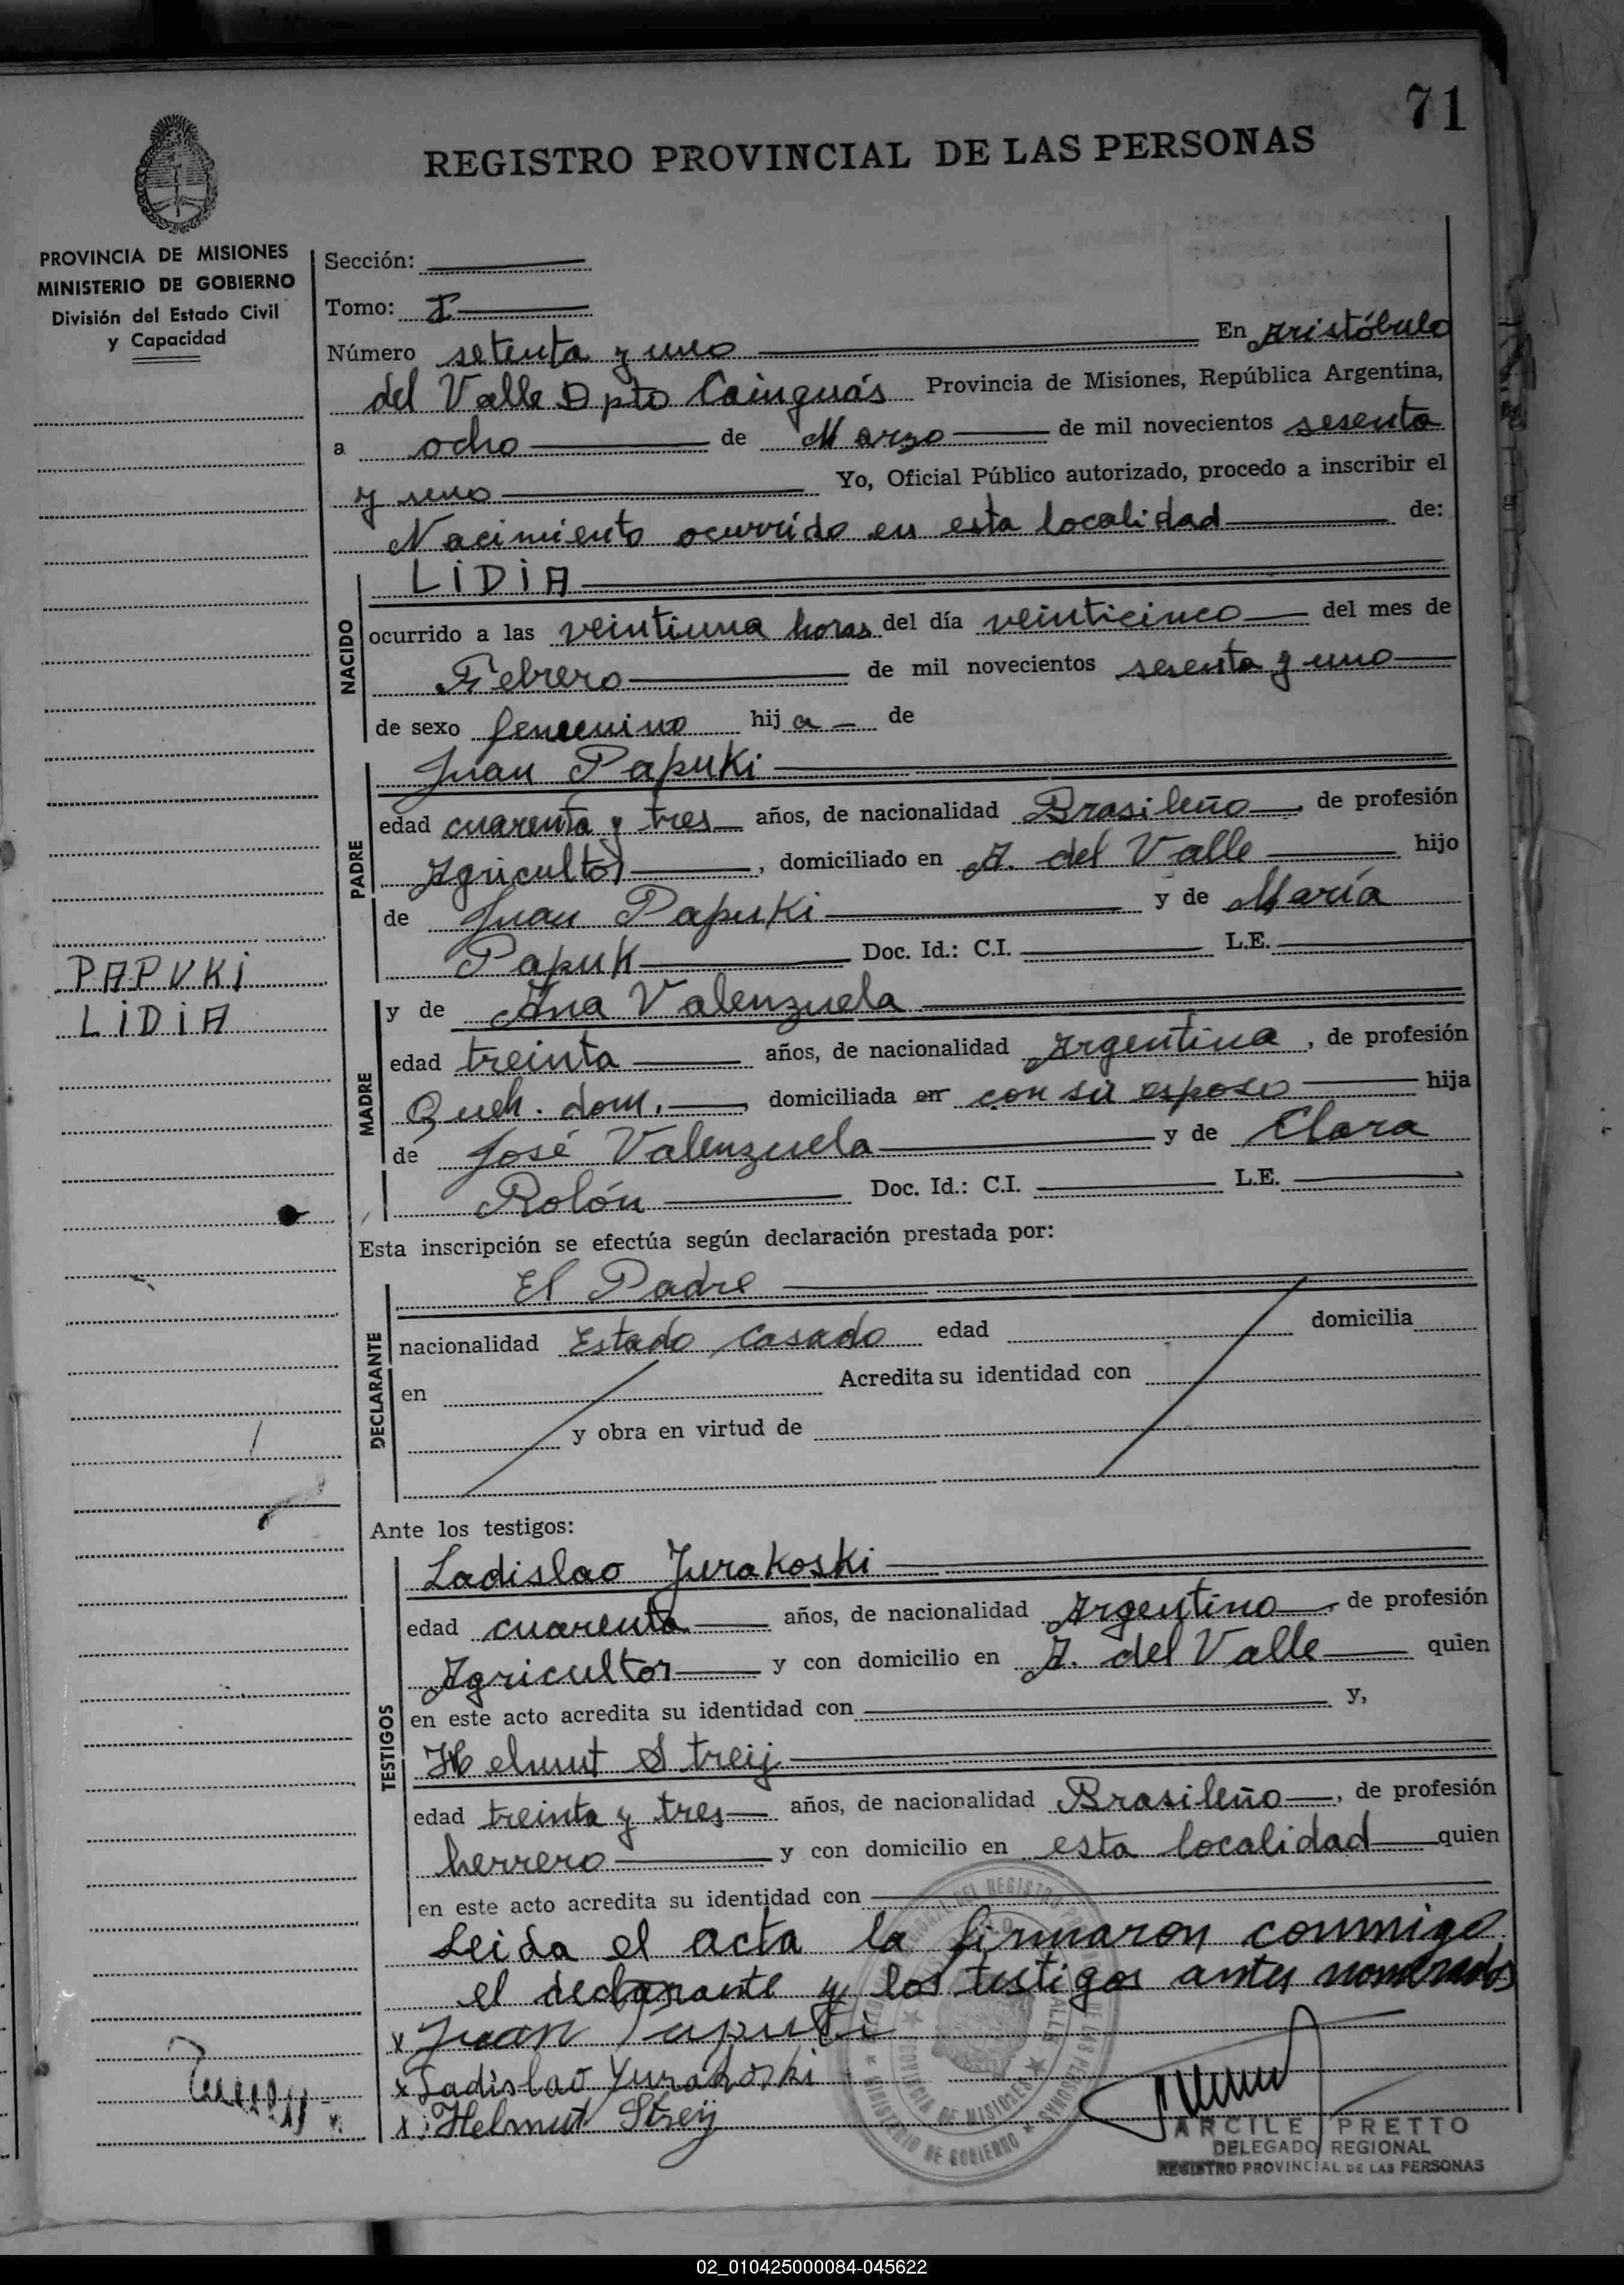 71
REGISTRO PROVINCIAL DE LAS PERSONAS
PROVINCIA DE MISIONES
MINISTERIO DE GOBIERNO
División del Estado Civil
y Capacidad
Sección:
Tomo: I
Número setenta y uno En Aristóbulo
del Valle Dpto Cainguás Provincia de Misiones, República Argentina,
a ocho de Marzo de mil novecientos sesenta
y uno Yo, Oficial Público autorizado, procedo a inscribir el
Nacimiento ocurrido en esta localidad de:
NACIDO
LIDIA
ocurrido a las veintiuna horas del día veinticinco del mes de
Febrero de mil novecientos sesenta y uno
de sexo femenino hija de
PADRE
Juan Papuki
edad cuarenta y tres años, de nacionalidad Brasileño, de profesión
Agricultor, domiciliado en A. del Valle hijo
de Juan Papuki y de María
Papuk Doc. Id.: C.I. L.E.
PAPUKI
LIDIA
MADRE
y de Ana Valenzuela
edad treinta años, de nacionalidad Argentina, de profesión
Queh. dom., domiciliada en con su esposo hija
de José Valenzuela y de Clara
Rolón Doc. Id.: C.I. L.E.
Esta inscripción se efectúa según declaración prestada por:
DECLARANTE
El Padre
nacionalidad Estado casado edad domicilia
en Acredita su identidad con
y obra en virtud de
Ante los testigos:
TESTIGOS
Ladislao Jurakoski
edad cuarenta años, de nacionalidad Argentino, de profesión
Agricultor y con domicilio en A. del Valle quien
en este acto acredita su identidad con y,
Helmut Streij
edad treinta y tres años, de nacionalidad Brasileño, de profesión
herrero y con domicilio en esta localidad quien
en este acto acredita su identidad con
Leida el acta la firmaron conmigo
el declarante y los testigos antes nombrados
x Juan Papuki
x Ladislao Yurakoski
x Helmut Streij
PROVINCIA DE MISIONES
MINISTERIO DE GOBIERNO
ARCILE PRETTO
DELEGADO REGIONAL
REGISTRO PROVINCIAL DE LAS PERSONAS
02_010425000084-045622